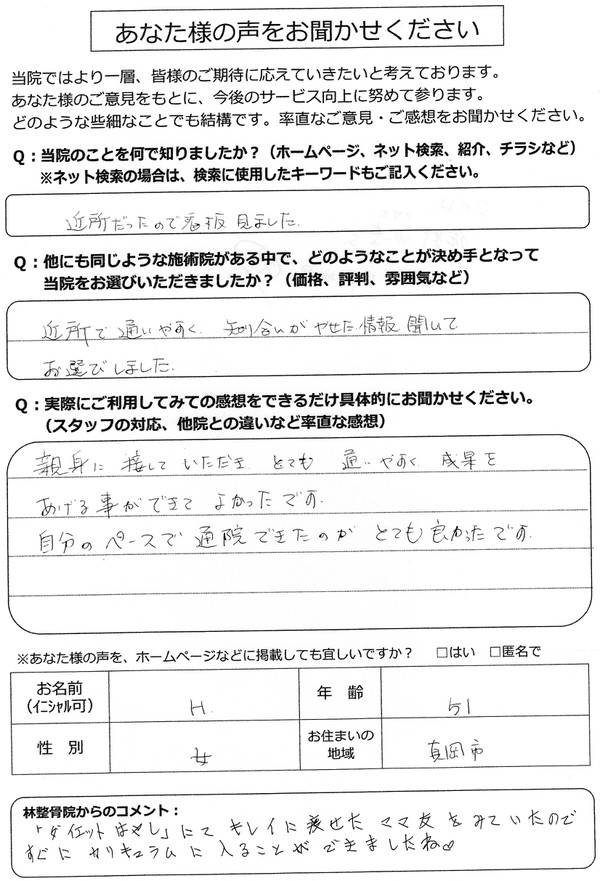 あなた様の声をお聞かせください
当院ではより一層、皆様のご期待に応えていきたいと考えております。
あなた様のご意見をもとに、今後のサービス向上に努めて参ります。
どのような些細なことでも結構です。率直なご意見・ご感想をお聞かせください。
Q：当院のことを何で知りましたか？（ホームページ、ネット検索、紹介、チラシなど）
※ネット検索の場合は、検索に使用したキーワードもご記入ください。
近所だったので看板見ました.
Q：他にも同じような施術院がある中で、どのようなことが決め手となって
当院をお選びいただきましたか？（価格、評判、雰囲気など）
近所で通いやすく、知り合いがやせた情報聞いて
お選びしました.
Q：実際にご利用してみての感想をできるだけ具体的にお聞かせください。
（スタッフの対応、他院との違いなど率直な感想）
親身に接していただき とても 通いやすく 成果を
あげる事ができて よかったです.
自分のペースで通院できたのが とても良かったです.
※あなた様の声を、ホームページなどに掲載しても宜しいですか？ □はい □匿名で
お名前
（ｲﾆｼｬﾙ可） H. 年 齢 51
性 別 女 お住まいの
地域 真岡市
林整骨院からのコメント：
「ダイエットはやし」にて キレイに痩せた ママ友 をみていたので
すぐに カリキュラムに 入ることが できましたね♡